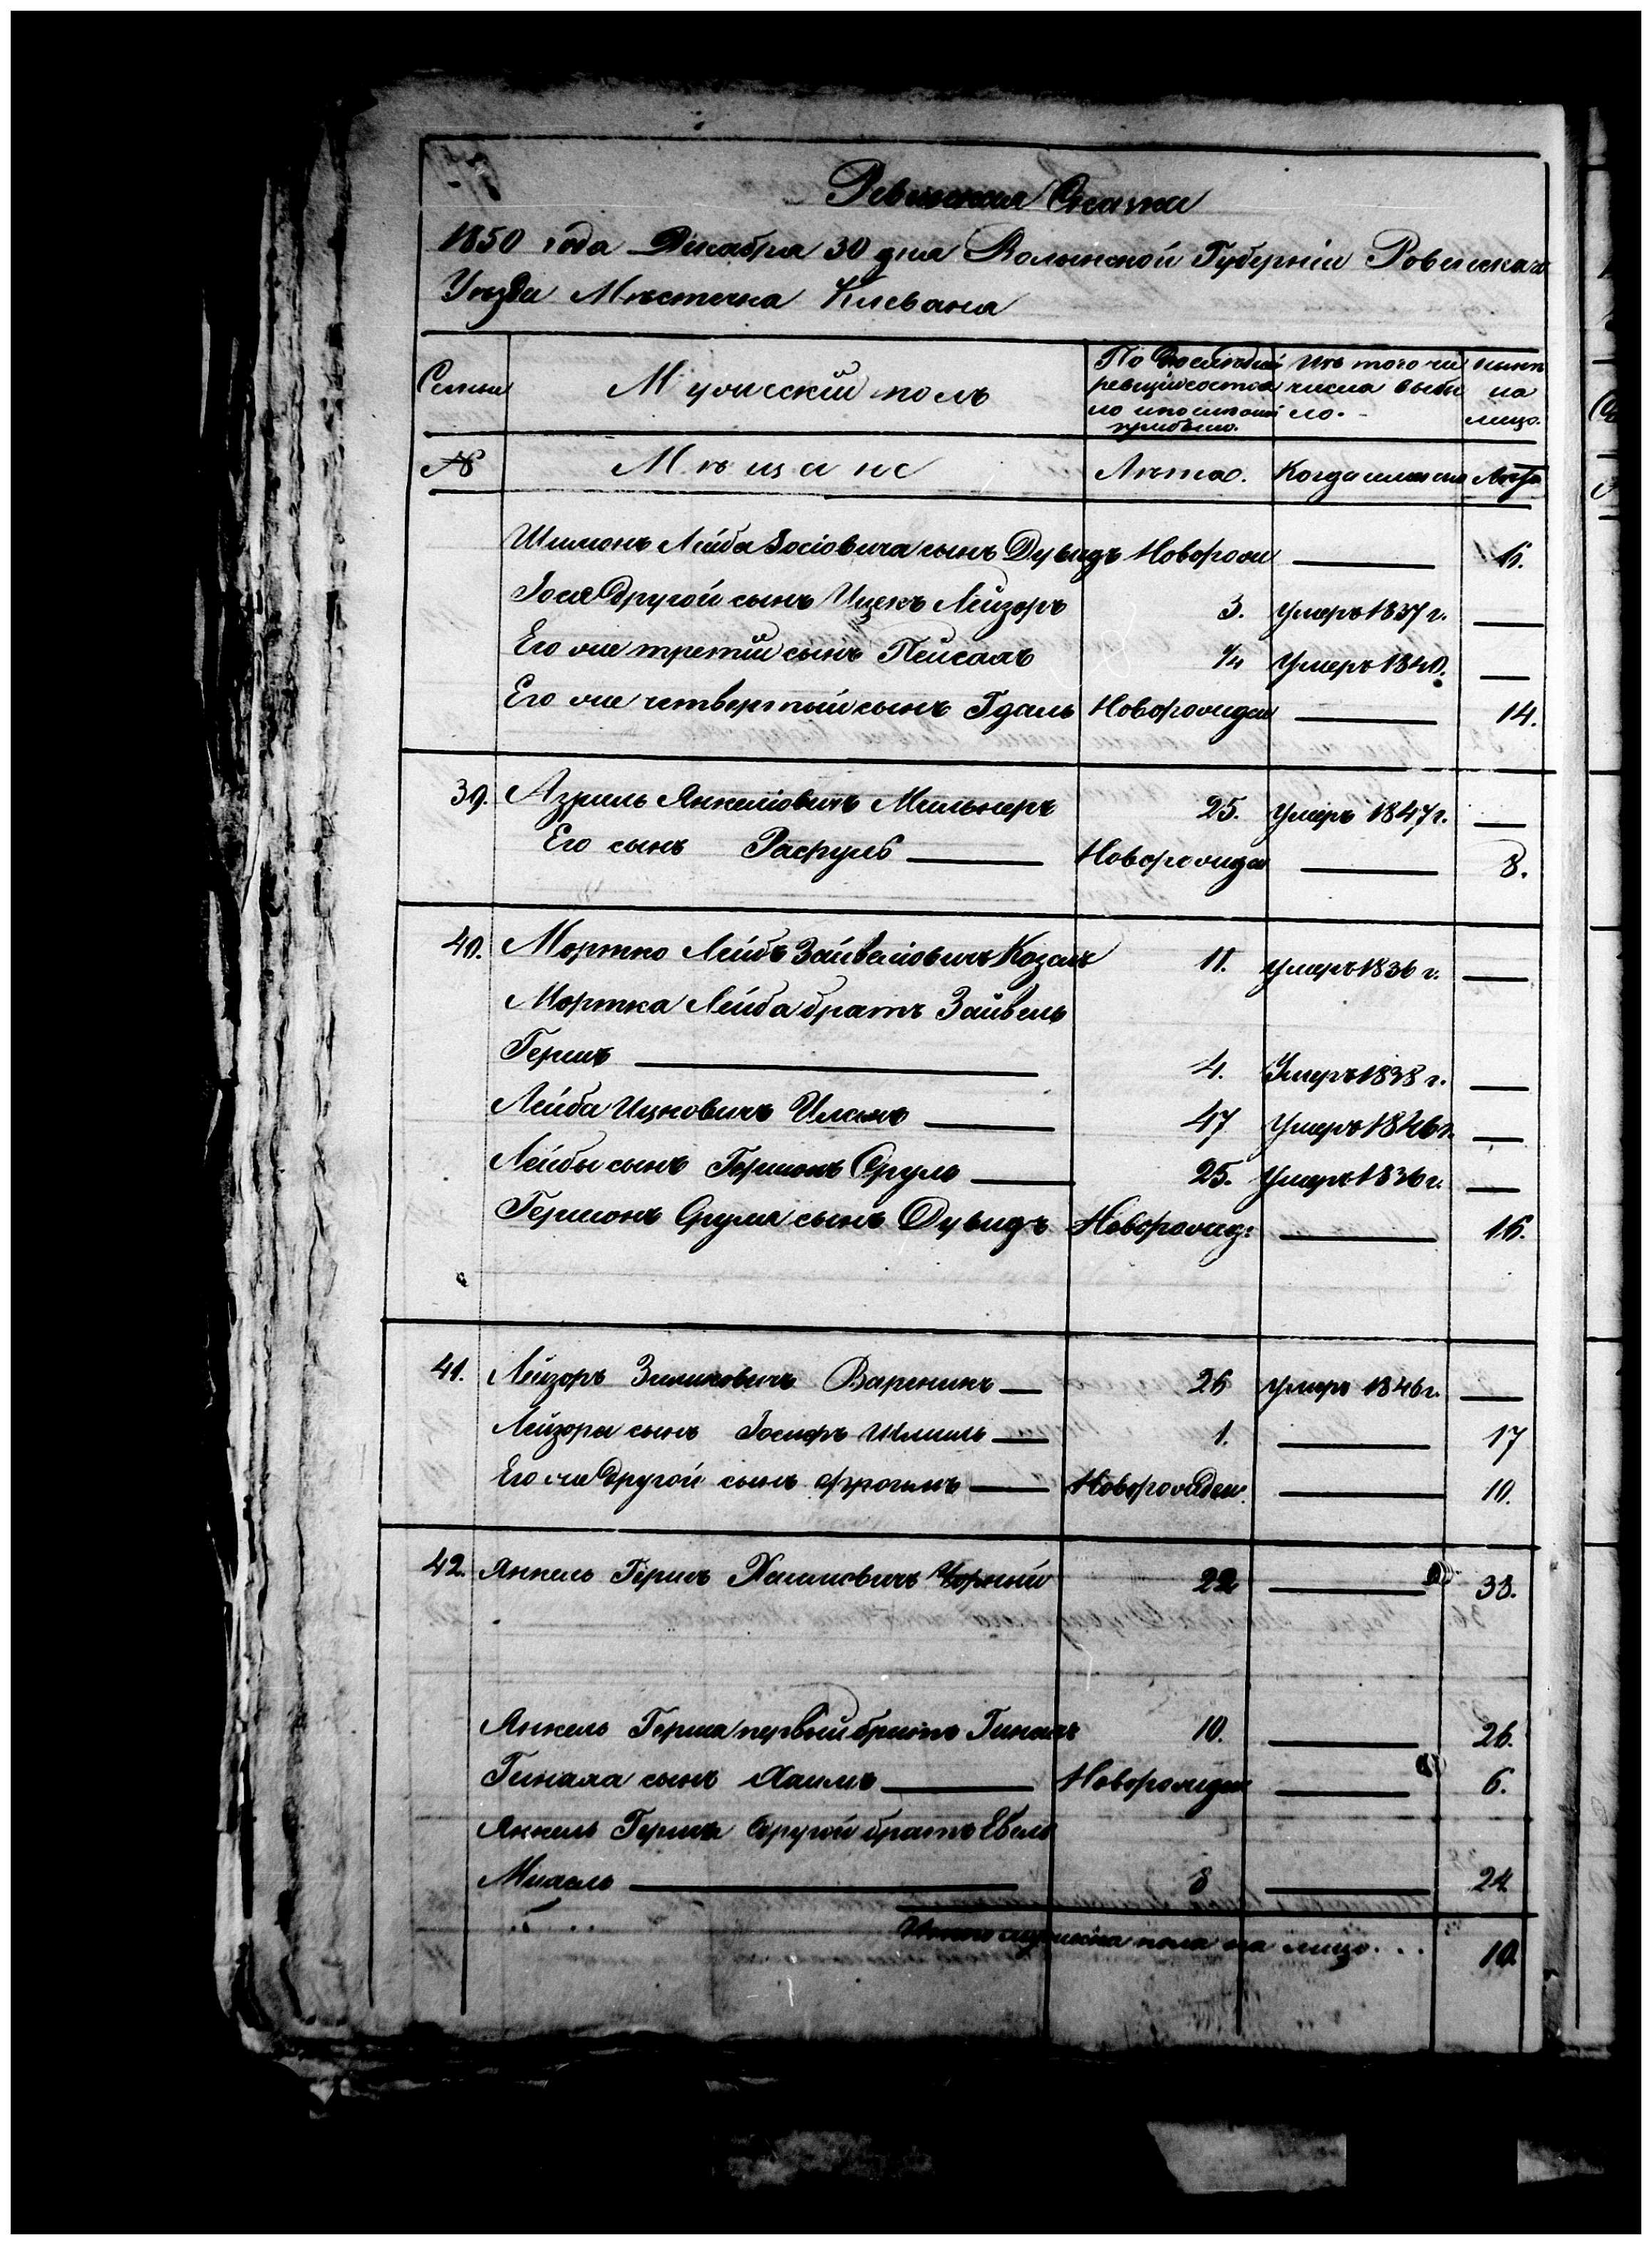 Ревизская Сказка
1850 года Декабря 30 дня Волынской Губерніи Ровенскаго
Уѣзда Мѣстечка Клеваня
Семьи
Мужескій полъ
По последней ревизіи состояло и после оной прибыло.
Изъ того числа выбыло.
Нынѣ на лицо.
№
Мѣщане
Лѣта.
Когда именно
Лѣта
Шимонъ Лейба Іосіовича сынъ Дувидъ Новорож 6.
Іося другой сынъ Ицекъ Лейзоръ 3. умеръ 1837 г.
Его же третій сынъ Пейсахъ 1/4 умеръ 1840.
Его же четвертый сынъ Гдаль Новорожден 14.
39. Азриль Янкеліовичъ Мильнеръ 25. умеръ 1847 г.
Его сынъ Новорожден 8.
40. Мортко Лейбъ Зайвеліовичъ Козакъ 11. умеръ 1836 г.
Мортка Лейба братъ Зайвель
Гершъ 4. Умеръ 1838 г.
Лейба Ицковичъ 47 Умеръ 1846 г.
Лейбы сынъ Гершонъ Сруль 25. умеръ 1836 г.
Гершонъ Сруля сынъ Дувидъ Новорожд: 16.
41. Лейзоръ Зельмановичъ Вареникъ 26 умеръ 1846 г.
Лейзора сынъ Іосифъ Шмиль 1. 17
Его же другой сынъ Фроимъ Новорожден. 10.
42. Янкель Гершъ Хаимовичъ Чорный 22 38.
Янкель Герша первый братъ Гиналъ 10. 26.
Гинала сынъ Хаимъ Новорожден 6.
Янкель Герша другой братъ Евель
Михель 8 24
Итого мужеска пола на лицо... 10.